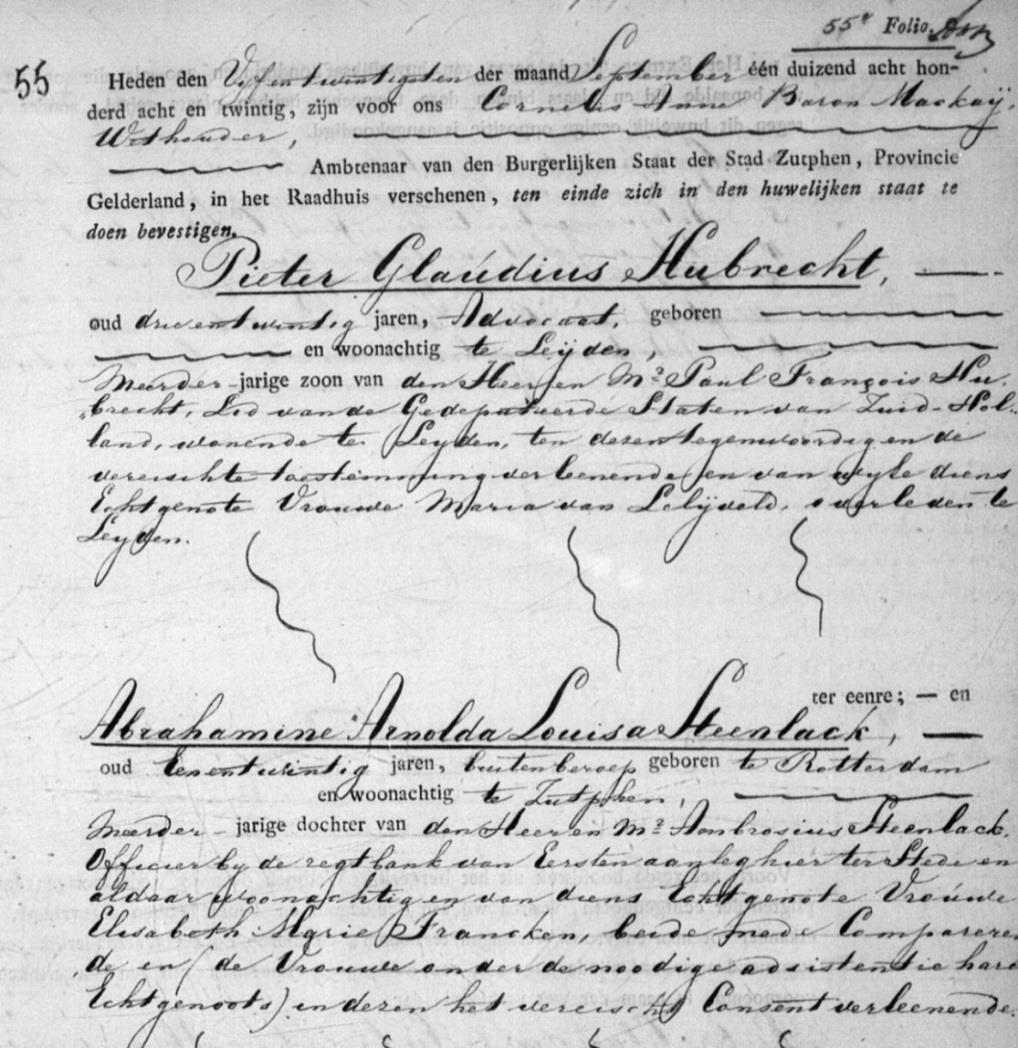 55ᵉ Folio.
55
Heden den Vyfentwintigsten der maand September één duizend acht hon-
derd acht en twintig, zijn voor ons Cornelis Anne Baron Mackaÿ,
Wethouder,
Ambtenaar van den Burgerlijken Staat der Stad Zutphen, Provincie
Gelderland, in het Raadhuis verschenen, ten einde zich in den huwelijken staat te
doen bevestigen.
Pieter Glaudius Hubrecht,
oud drieentwintig jaren, Advocaat, geboren
en woonachtig te Leÿden,
Meerder-jarige zoon van den Heer en Mr. Paul François Hu-
brecht, Lid van de Gedeputeerde Staten van Zuid-Hol-
land, wonende te Leyden, ten dezen tegenwoordig en de
vereischte toestemming verleenende, en van wyle diens
Echtgenote Vrouwe Maria van Lelÿveld, overleden te
Leyden.
ter eenre; — en
Abrahamine Arnolda Louisa Steenlack,
oud Eenentwintig jaren, buiten beroep geboren te Rotterdam
en woonachtig te Zutphen,
Meerder-jarige dochter van den Heer en Mr. Ambrosius Steenlack,
Officier by de regtbank van Eersten aanleg hier ter Stede en
aldaar woonachtig en van diens Echtgenote Vrouwe
Elisabeth Marie Francken, beide mede Compareren-
de en (de Vrouwe onder de noodige adsistentie hares
Echtgenoots) in dezen het vereischt Consent verleenende.